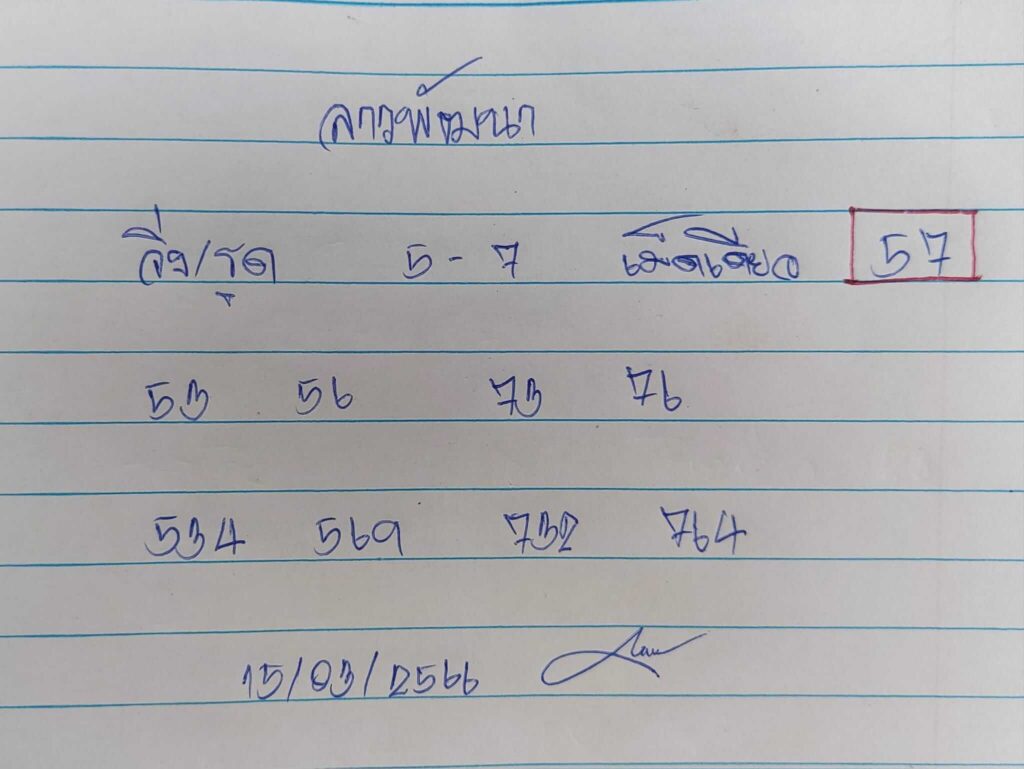 ลาวพัฒนา
วิ่ง/รูด 5 - 7 เม็ดเดียว 57
53 56 73 76
534 569 732 764
15/03/2566